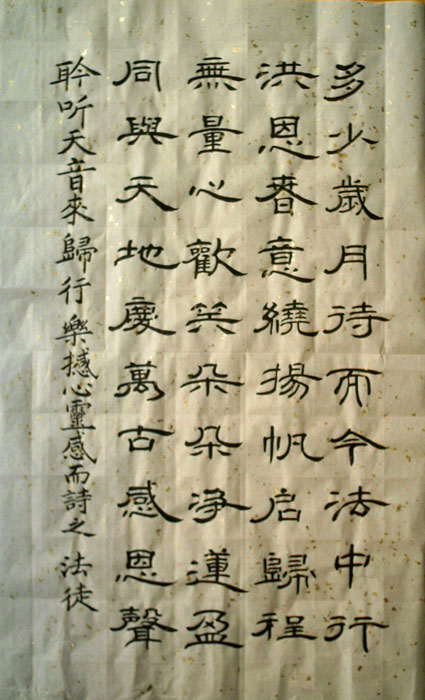 多少歲月待而今法中行
洪恩春意繞揚帆启歸程
無量心歡笑朵朵净蓮盈
同與天地慶萬古感恩聲
聆听天音來歸行樂撼心靈感而詩之 法徒